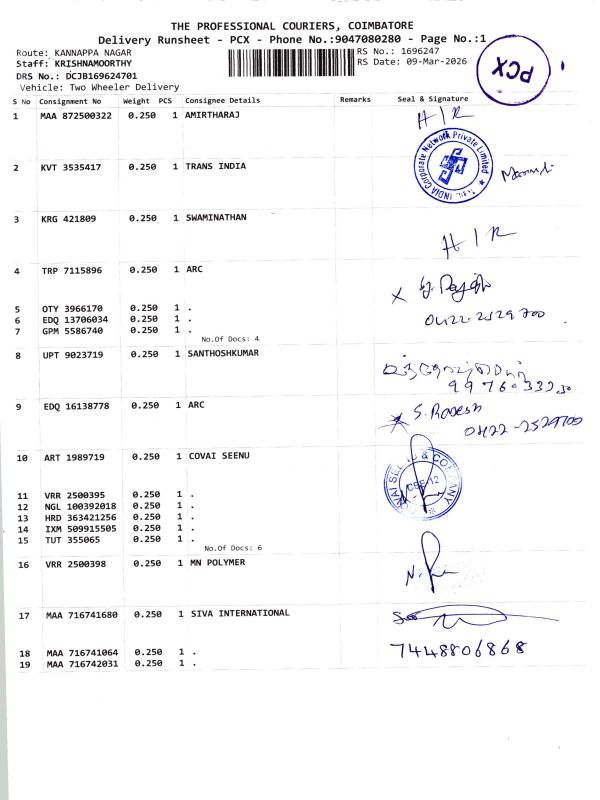 THE PROFESSIONAL COURIERS, COIMBATORE
Delivery Runsheet - PCX - Phone No.:9047080280 - Page No.:1
Route: KANNAPPA NAGAR
RS No.: 1696247
Staff: KRISHNAMOORTHY
RS Date: 09-Mar-2026
DRS No.: DCJB169624701
Vehicle: Two Wheeler Delivery
PCX
S No Consignment No Weight PCS Consignee Details Remarks Seal & Signature
1 MAA 872500322 0.250 1 AMIRTHARAJ H/R
2 KVT 3535417 0.250 1 TRANS INDIA
INDIA Corporate Network Private Limited
3 KRG 421809 0.250 1 SWAMINATHAN
H/R
4 TRP 7115896 0.250 1 ARC
5 OTY 3966170 0.250 1 .
6 EDQ 13706034 0.250 1 .
0422-2529700
7 GPM 5586740 0.250 1 .
No.Of Docs: 4
8 UPT 9023719 0.250 1 SANTHOSHKUMAR
9 EDQ 16138778 0.250 1 ARC
0422-2529700
10 ART 1989719 0.250 1 COVAI SEENU
& COMPANY
CBE-12
11 VRR 2500395 0.250 1 .
12 NGL 100392018 0.250 1 .
13 HRD 363421256 0.250 1 .
14 IXM 509915505 0.250 1 .
15 TUT 355065 0.250 1 .
No.Of Docs: 6
16 VRR 2500398 0.250 1 MN POLYMER
17 MAA 716741680 0.250 1 SIVA INTERNATIONAL
18 MAA 716741064 0.250 1 .
7448806868
19 MAA 716742031 0.250 1 .